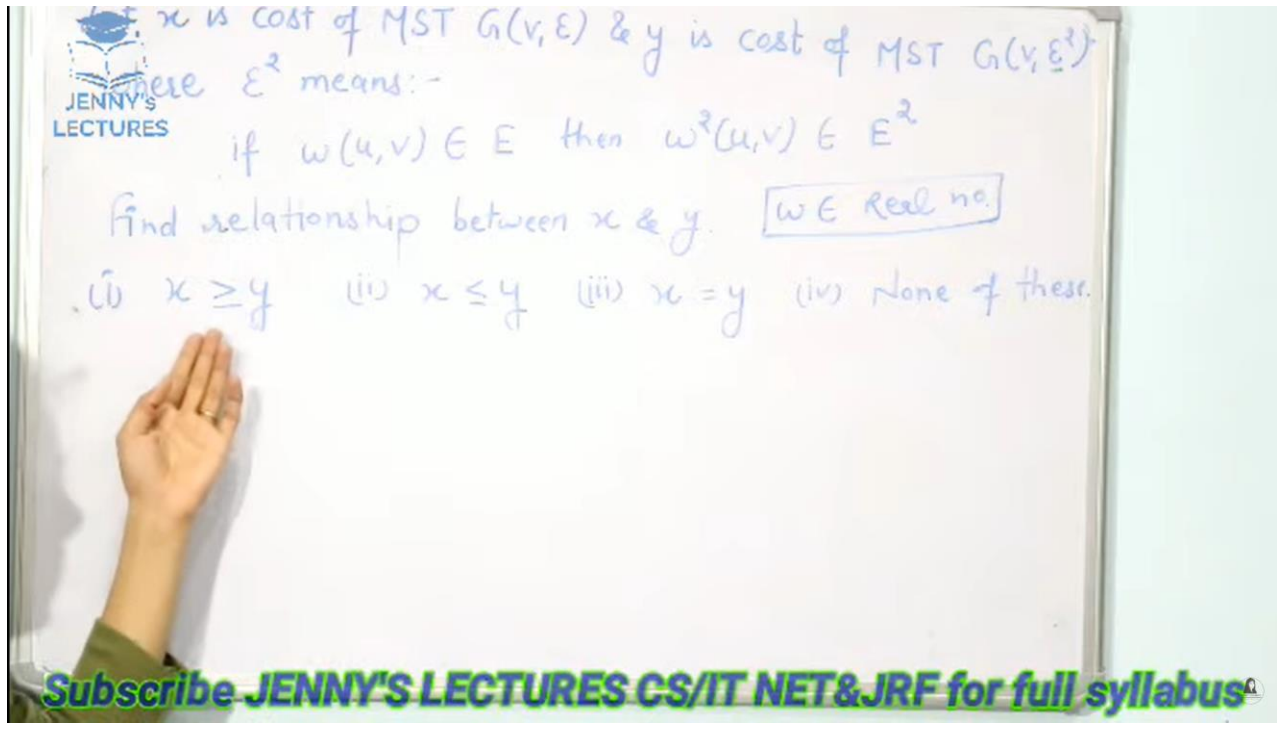 x is cost of MST G(V,E) & y is cost of MST G(V,E²)
where E² means:-
if w(u,v) ∈ E then w²(u,v) ∈ E²
find relationship between x & y. w ∈ Real no.
(i) x ≥ y (ii) x ≤ y (iii) x = y (iv) None of these.
JENNY's
LECTURES
Subscribe JENNY'S LECTURES CS/IT NET&JRF for full syllabus